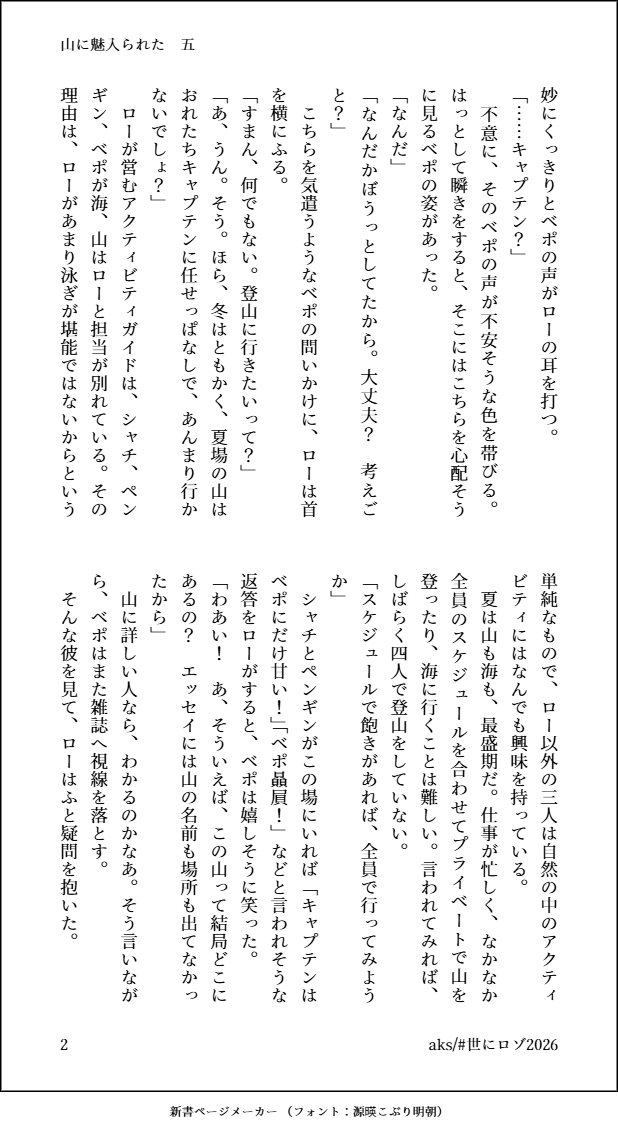 山に魅入られた　五
妙にくっきりとベポの声がローの耳を打つ。
「……キャプテン？」
　不意に、そのベポの声が不安そうな色を帯びる。
はっとして瞬きをすると、そこにはこちらを心配そう
に見るベポの姿があった。
「なんだ」
「なんだかぼうっとしてたから。大丈夫？　考えご
と？」
　こちらを気遣うようなベポの問いかけに、ローは首
を横にふる。
「すまん、何でもない。登山に行きたいって？」
「あ、うん。そう。ほら、冬はともかく、夏場の山は
おれたちキャプテンに任せっぱなしで、あんまり行か
ないでしょ？」
　ローが営むアクティビティガイドは、シャチ、ペン
ギン、ベポが海、山はローと担当が別れている。その
理由は、ローがあまり泳ぎが堪能ではないからという
単純なもので、ロー以外の三人は自然の中のアクティ
ビティにはなんでも興味を持っている。
　夏は山も海も、最盛期だ。仕事が忙しく、なかなか
全員のスケジュールを合わせてプライベートで山を
登ったり、海に行くことは難しい。言われてみれば、
しばらく四人で登山をしていない。
「スケジュールで飽きがあれば、全員で行ってみよう
か」
　シャチとペンギンがこの場にいれば「キャプテンは
ベポにだけ甘い！」「ベポ贔屓！」などと言われそうな
返答をローがすると、ベポは嬉しそうに笑った。
「わあい！　あ、そういえば、この山って結局どこに
あるの？　エッセイには山の名前も場所も出てなかっ
たから」
　山に詳しい人なら、わかるのかなあ。そう言いなが
ら、ベポはまた雑誌へ視線を落とす。
　そんな彼を見て、ローはふと疑問を抱いた。
2
aks/#世にロゾ2026
新書ページメーカー（フォント：源暎こぶり明朝）